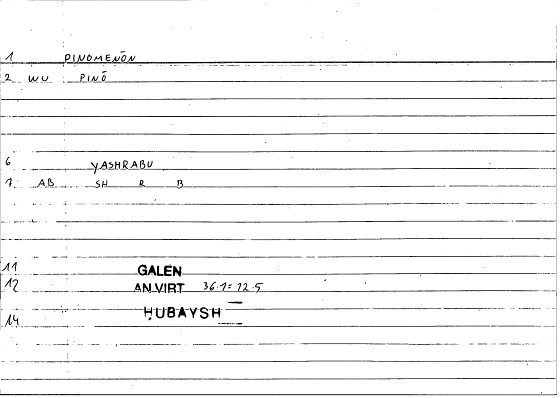 1 PINOMENŌN
2 WU PINŌ
6 YASHRABU
7 AB SH R B
11 GALEN
12 AN.VIRT 36.1=12.5
14 ḤUBAYSH